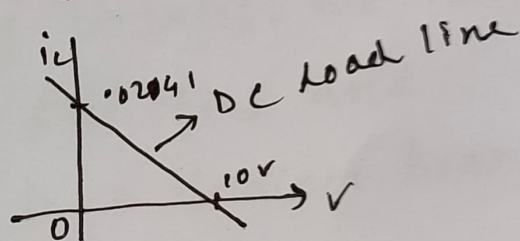 ic
.02041
DC Load line
10V
V
0